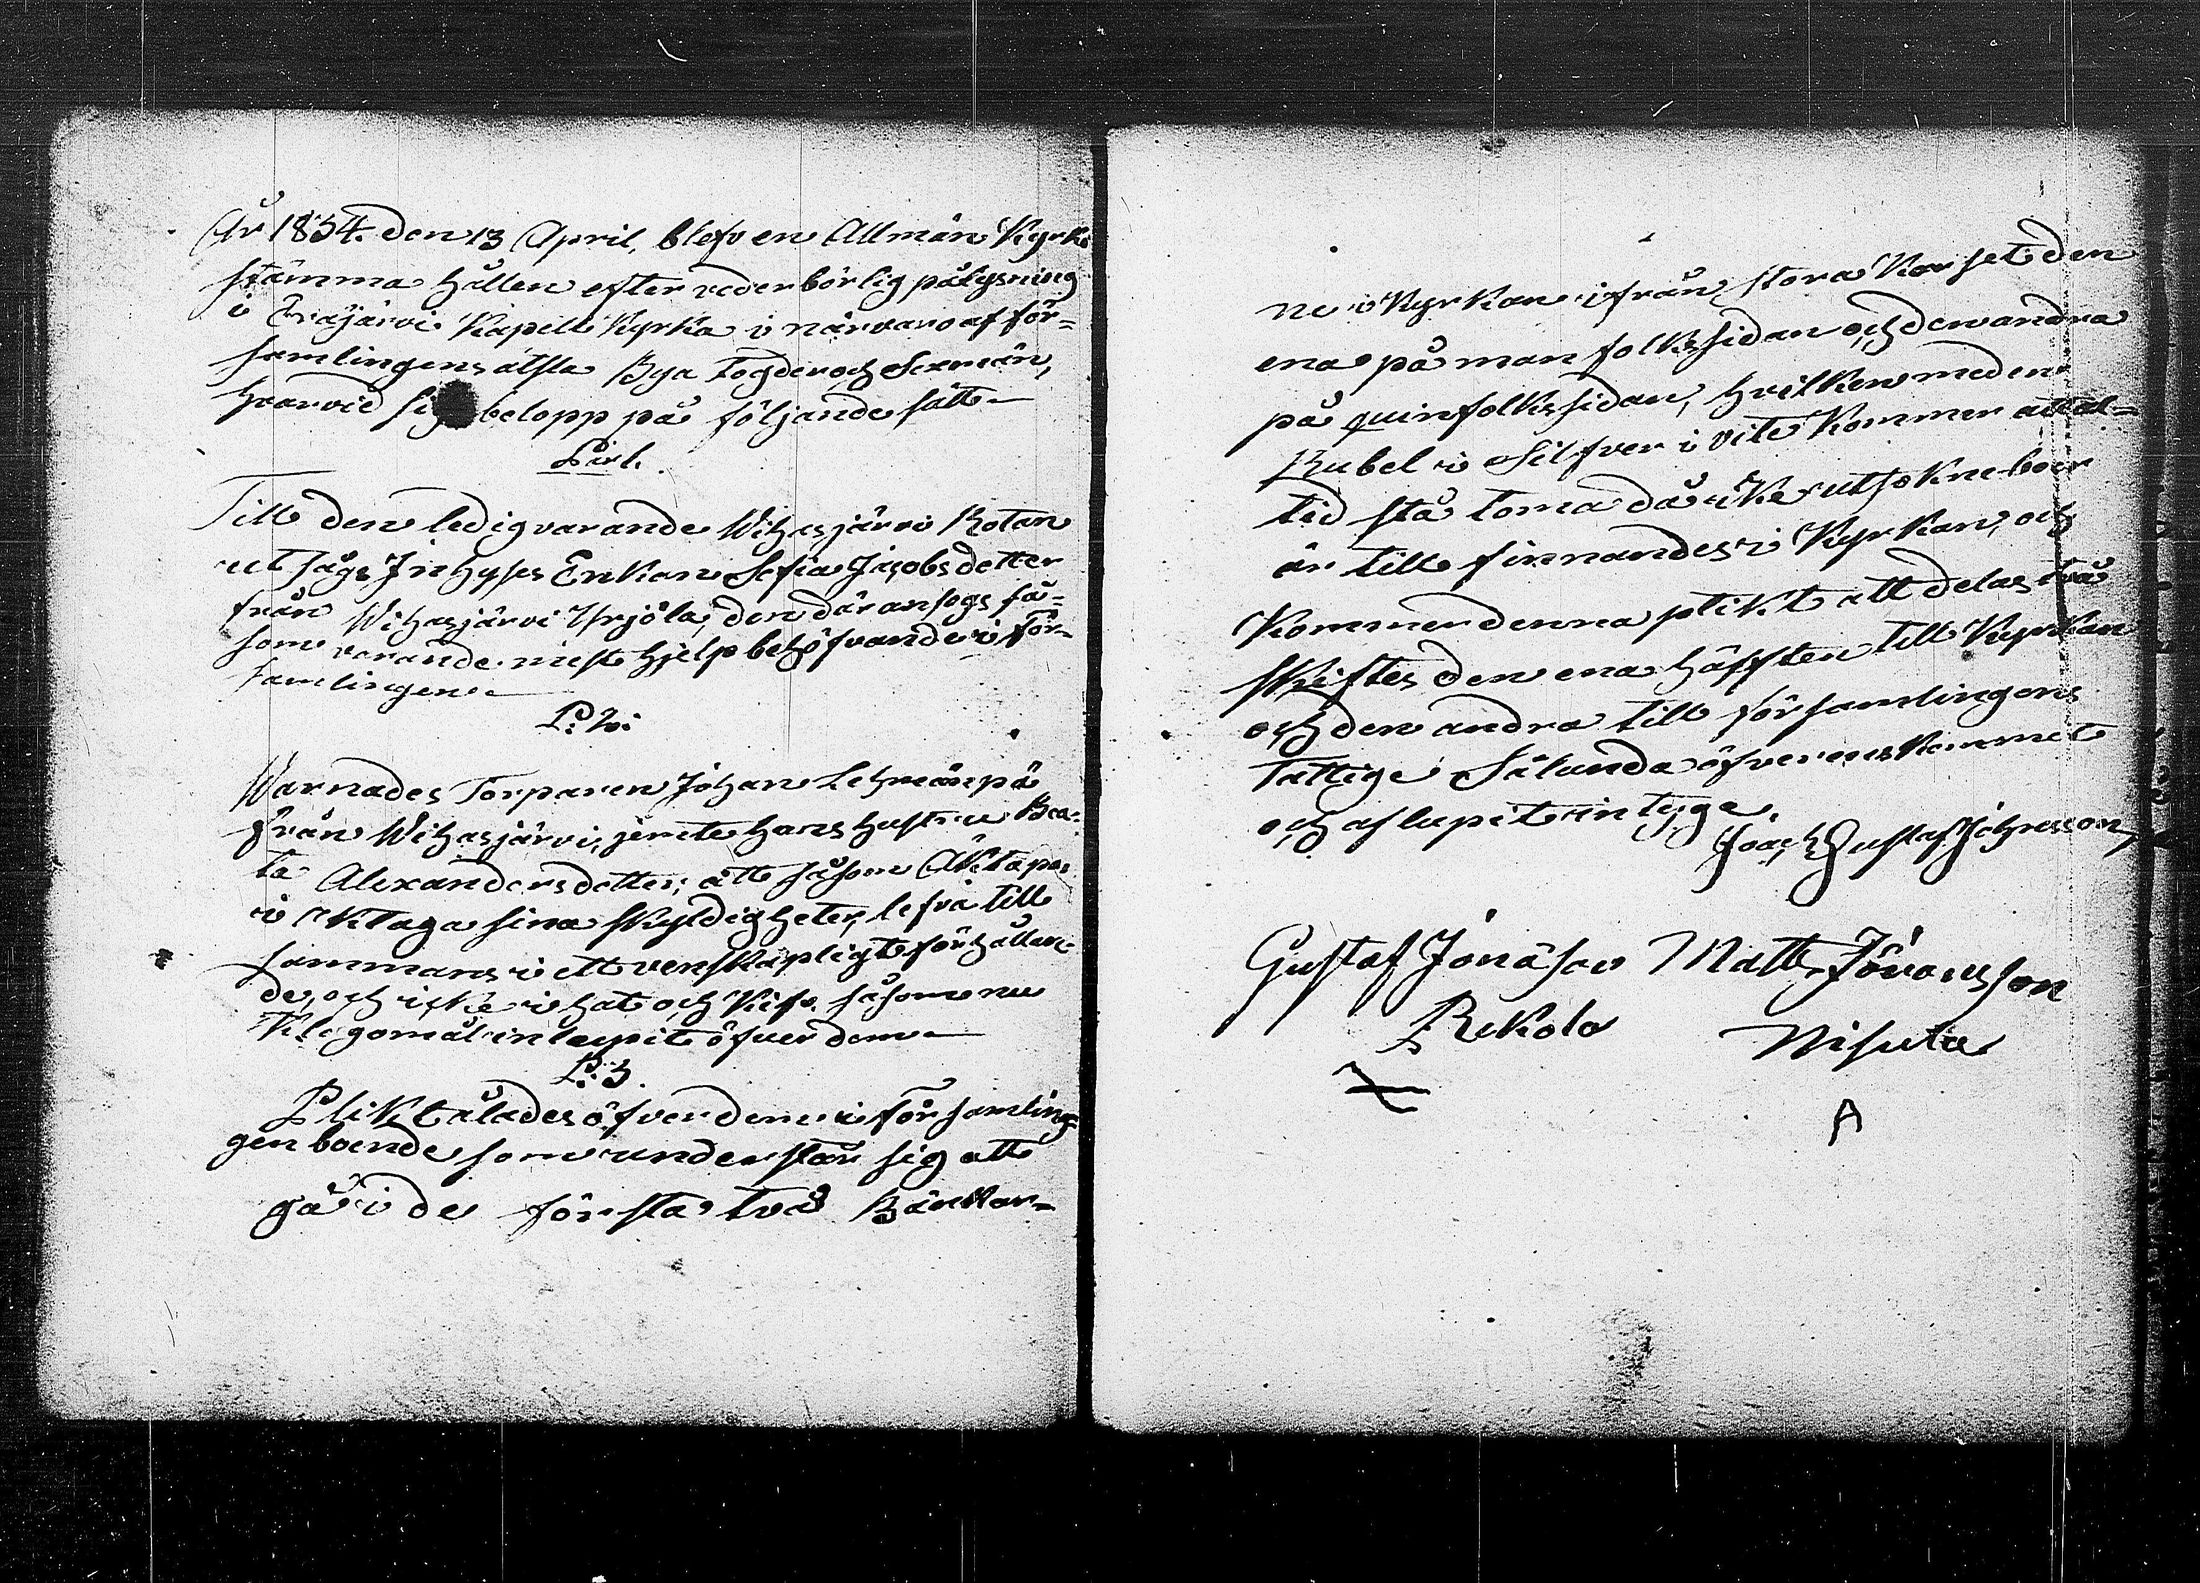 År 1854. den 13 April, blefv en Allmän Kyrko
stämma hållen efter vederbörlig pålysning
i Eräjärvi Kapell Kyrka i närvaro af för=
samlingens älsta Bya fogder och Sexmän,
hvarvid sig belopp på följande sätt
P: 1.
Till den ledigvarande Wihasjärvi Rotan
utsågs Inhyses Enkan Sofia Jacobsdotter
från Wihasjärvi Yrjölä, den där ansogs få=
som varande mest hjelpbehöfvande i för=
samlingen.
P: 2:
Warnades Torparen Johan Lehmänpä
från Wihasjärvi, jemte hans hustru Bea=
ta Alexandersdotter, att såsom Äktapar
i Ktaga sina skyldigheter, lefva till
sammans i ett venskapligt förhållan=
de, och icke i hat och Kif såsom nu
Klagomål inlupit öfver dem
P: 3.
Plikt ålades öfver dem i församling=
gen boende som understår sig att
gå i de första två Bänkar=
ne i Kyrkan ifrån stora Korset den
ena på manfolkssidan och den andra
på quinfolkssidan, hvilken med en
Rubel i Silfver i vite Kommer att al=
tid stå toma då icke utsokne boer
är till finnandes i Kyrkan, och
Kommer denna plikt att delas två
skiftes den ena häfften till Kyrkan
och den andra till församlingens
fattige Sålunda öfverenskommet
och aflupit intyga.
Joach Gustaf Johnsson
Gustaf Jonäson Matts Jöransson
Rekola Nisula
A